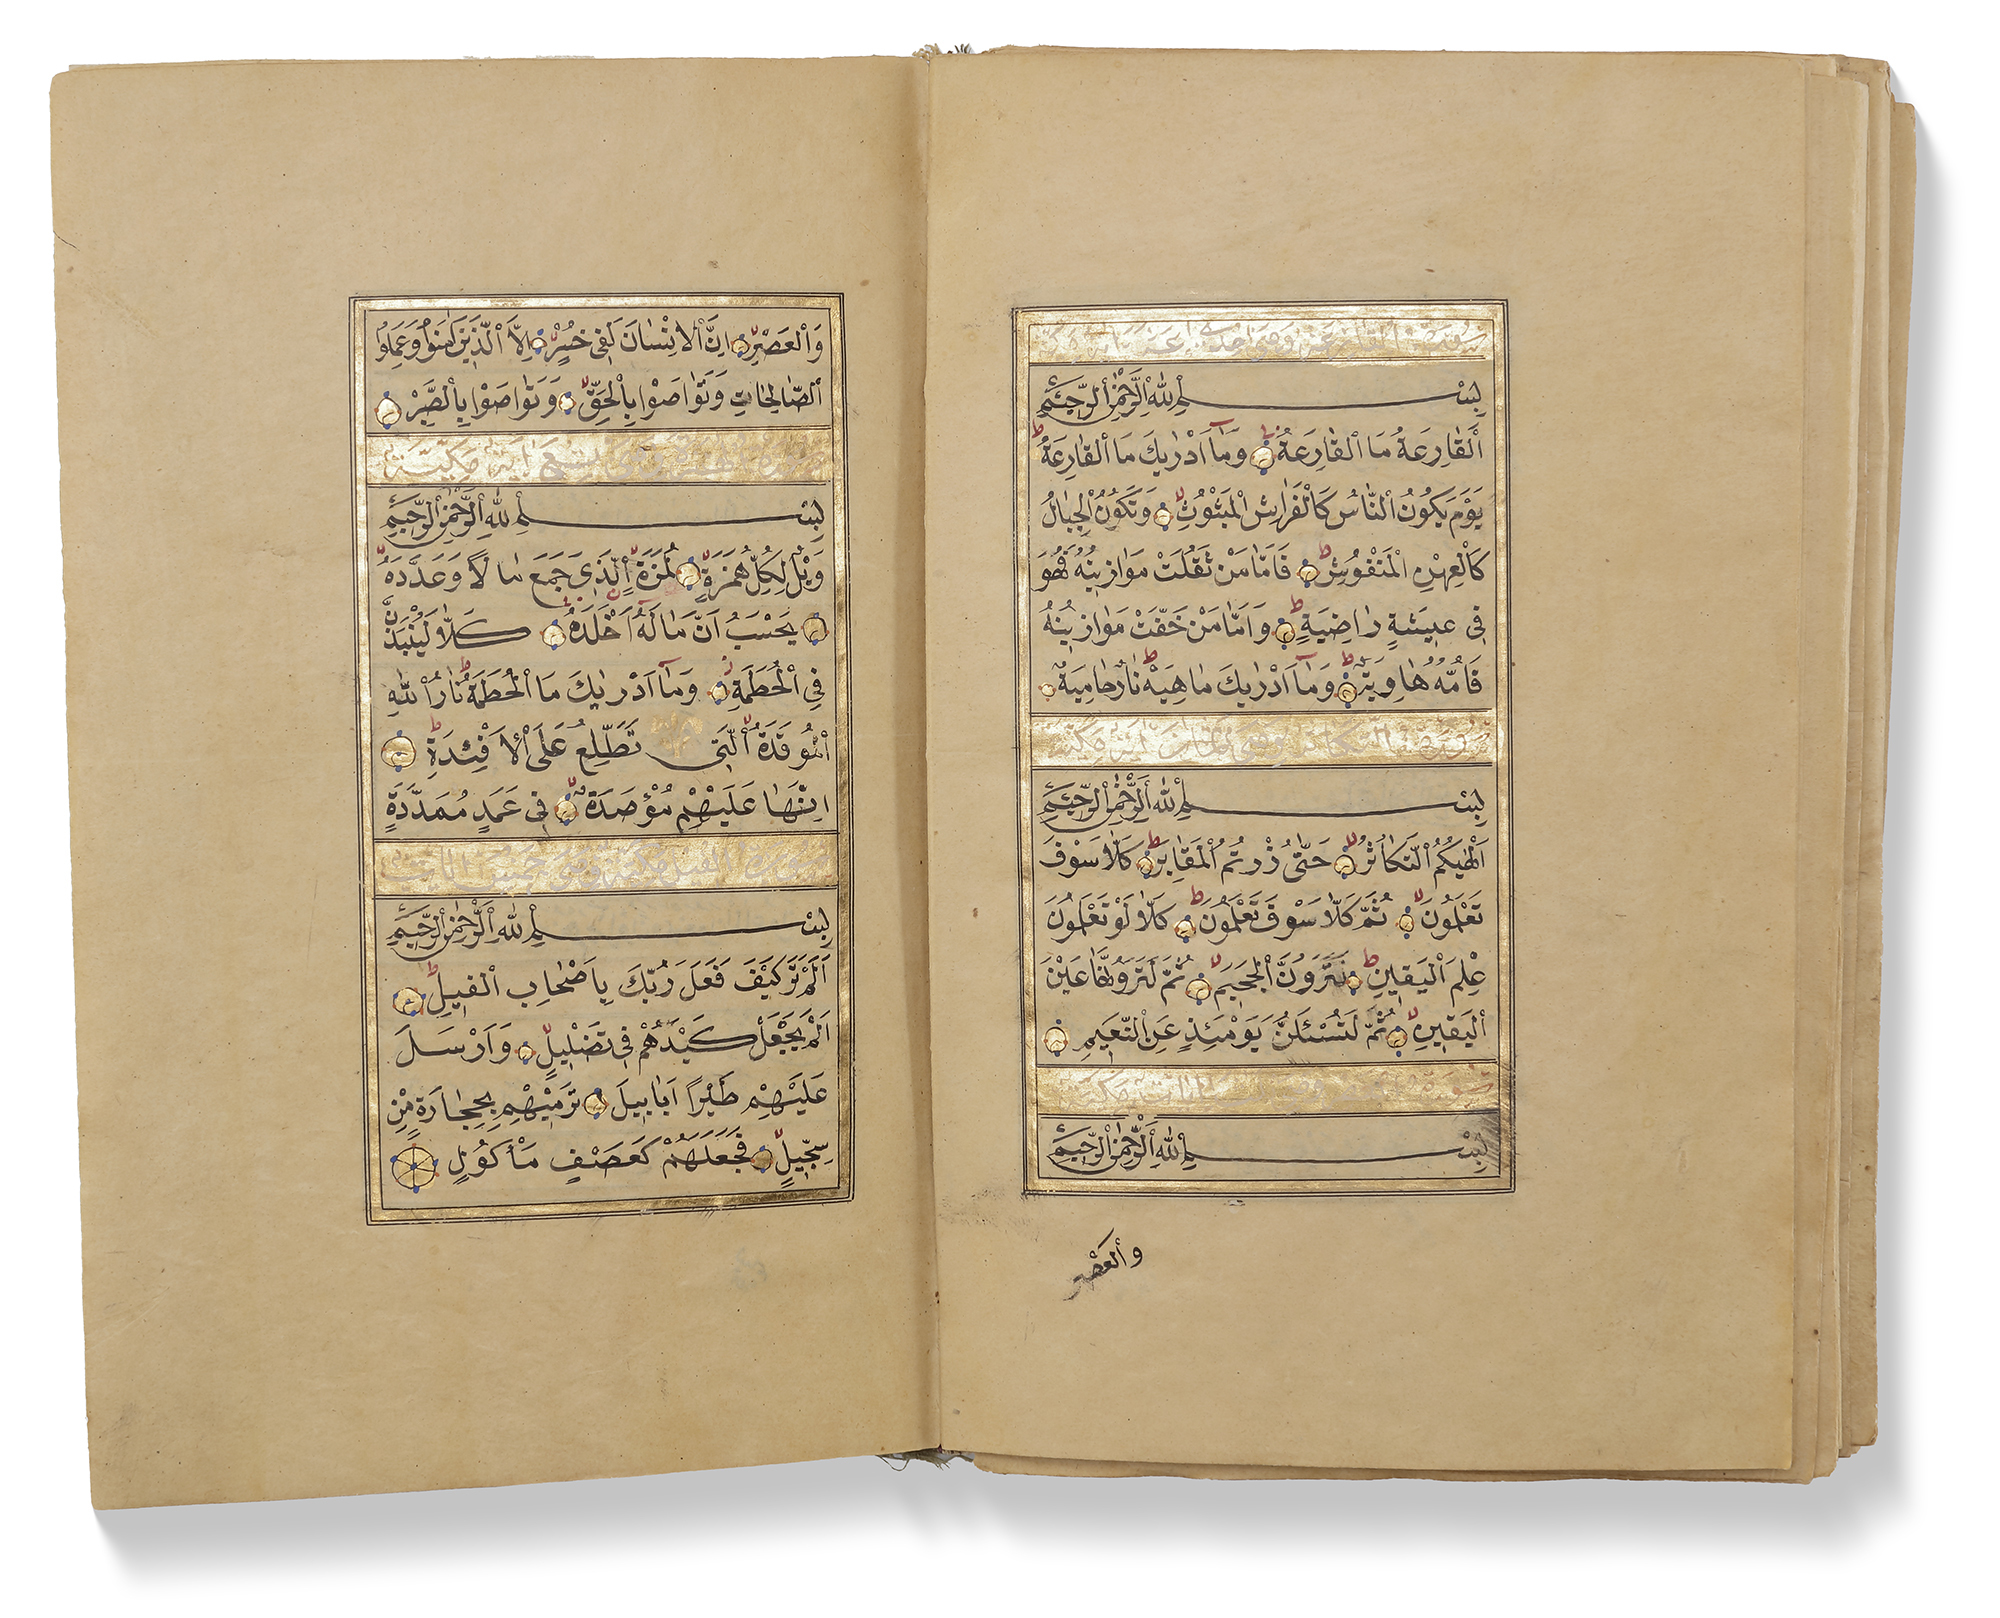 سورة القارعة وهى احدى عشر اية مكية
بِسْمِ اللهِ الرَّحْمٰنِ الرَّحٖيمِ
اَلْقَارِعَةُ مَا الْقَارِعَةُ وَمَٓا اَدْرٰيكَ مَا الْقَارِعَةُ
يَوْمَ يَكُونُ النَّاسُ كَالْفَرَاشِ الْمَبْثُوثِ وَتَكُونُ الْجِبَالُ
كَالْعِهْنِ الْمَنْفُوشِ فَاَمَّا مَنْ ثَقُلَتْ مَوَازٖينُهُ فَهُوَ
فٖى عٖيشَةٍ رَاضِيَةٍ وَاَمَّا مَنْ خَفَّتْ مَوَازٖينُهُ
فَاُمُّهُ هَاوِيَةٌ وَمَٓا اَدْرٰيكَ مَاهِيَهْ نَارٌ حَامِيَةٌ
سورة التكاثر وهى ثمان اية مكية
بِسْمِ اللهِ الرَّحْمٰنِ الرَّحٖيمِ
اَلْهٰيكُمُ التَّكَاثُرُ حَتّٰى زُرْتُمُ الْمَقَابِرَ كَلَّا سَوْفَ
تَعْلَمُونَ ثُمَّ كَلَّا سَوْفَ تَعْلَمُونَ كَلَّا لَوْ تَعْلَمُونَ
عِلْمَ الْيَقٖينِ لَتَرَوُنَّ الْجَحٖيمَ ثُمَّ لَتَرَوُنَّهَا عَيْنَ
الْيَقٖينِ ثُمَّ لَتُسْئَلُنَّ يَوْمَئِذٍ عَنِ النَّعٖيمِ
سورة ايات مكية
بِسْمِ اللهِ الرَّحْمٰنِ الرَّحٖيمِ
والعصر
وَالْعَصْرِ اِنَّ الْاِنْسَانَ لَفٖى خُسْرٍ اِلَّا الَّذٖينَ اٰمَنُوا وَعَمِلُوا
الصَّالِحَاتِ وَتَوَاصَوْا بِالْحَقِّ وَتَوَاصَوْا بِالصَّبْرِ
سورة الهمزة وهى تسع اية مكية
بِسْمِ اللهِ الرَّحْمٰنِ الرَّحٖيمِ
وَيْلٌ لِكُلِّ هُمَزَةٍ لُمَزَةٍ اَلَّذٖى جَمَعَ مَالًا وَعَدَّدَهُ
يَحْسَبُ اَنَّ مَالَهُ اَخْلَدَهُ كَلَّا لَيُنْبَذَنَّ
فِى الْحُطَمَةِ وَمَٓا اَدْرٰيكَ مَا الْحُطَمَةُ نَارُ اللهِ
الْمُوقَدَةُ الَّتٖى تَطَّلِعُ عَلَى الْاَفْئِدَةِ
اِنَّهَا عَلَيْهِمْ مُؤْصَدَةٌ فٖى عَمَدٍ مُمَدَّدَةٍ
سورة الفيل مكية وهى خمس ايات
بِسْمِ اللهِ الرَّحْمٰنِ الرَّحٖيمِ
اَلَمْ تَرَ كَيْفَ فَعَلَ رَبُّكَ بِاَصْحَابِ الْفٖيلِ
اَلَمْ يَجْعَلْ كَيْدَهُمْ فٖى تَضْلٖيلٍ وَاَرْسَلَ
عَلَيْهِمْ طَيْرًا اَبَابٖيلَ تَرْمٖيهِمْ بِحِجَارَةٍ مِنْ
سِجّٖيلٍ فَجَعَلَهُمْ كَعَصْفٍ مَأْكُولٍ